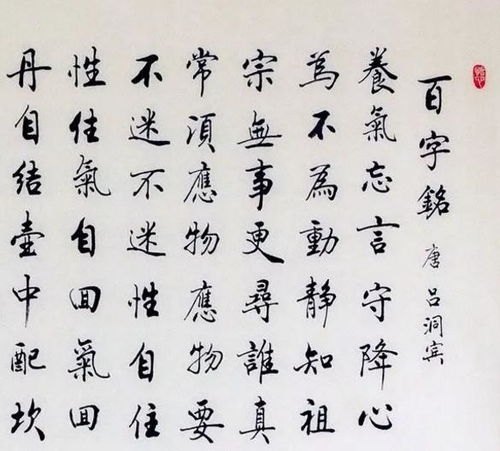 百字銘 唐 吕洞宾
養氣忘言守降心
為不為動靜知祖
宗無事更尋誰真
常須應物應物要
不迷不迷性自住
性住氣自回氣回
丹自結壺中配坎